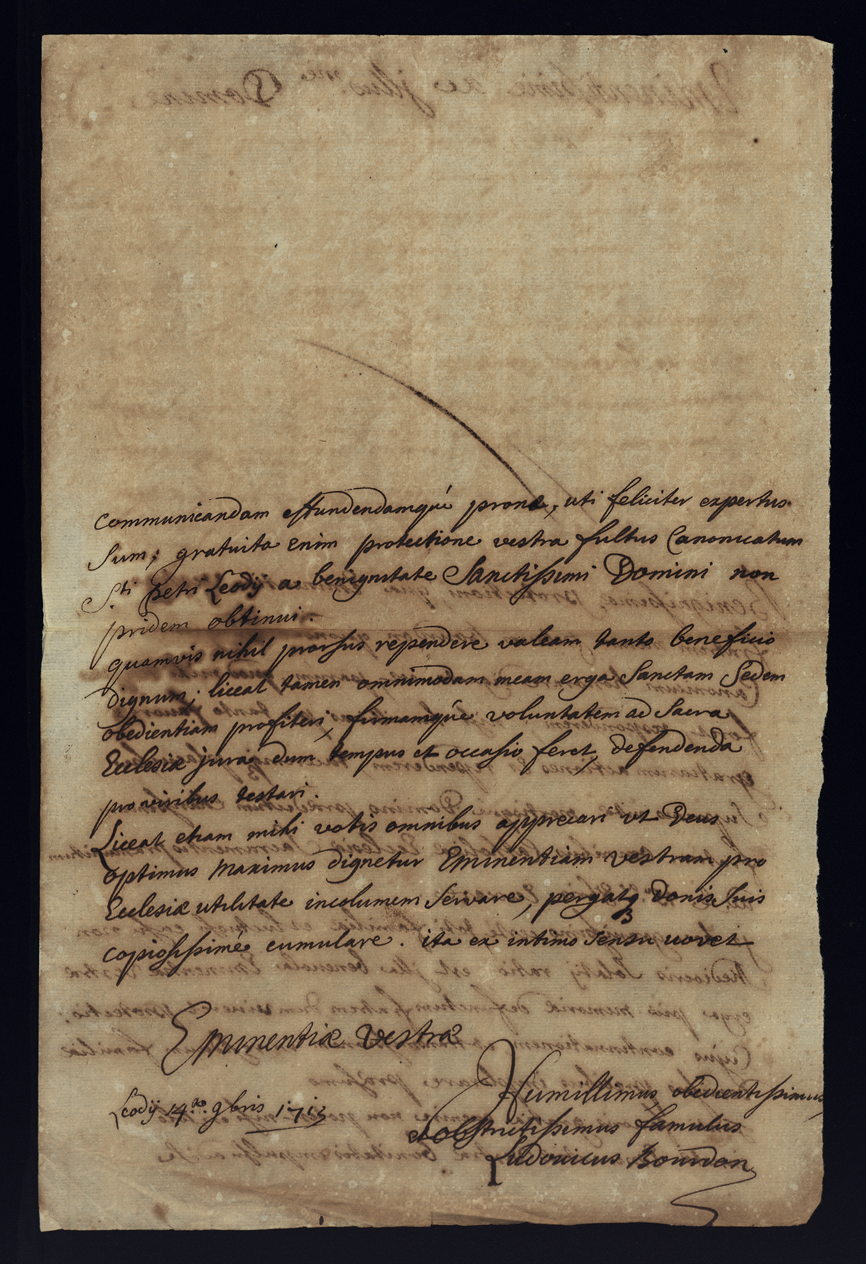 communicandam effundendamqué pronæ, uti feliciter expertus
sum; gratuita enim protectione vestra fultus Canonicatum
S.ti Petri Leodij a benignitate Sanctissimi Domini non
pridem obtinui.
quamvis nihil prorsus rependere valeam tanto beneficio
dignum; liceat tamen omnimodam meam erga Sanctam Sedem
obedientiam profiteri, firmamqûe voluntatem ad Sacra
Ecclesiæ jura, dum tempus et occasio feret, defendenda
pro viribus testari.
Liceat etiam mihi votis omnibus apprecari ut Deus
optimus maximus dignetur Eminentiam vestram pro
Ecclesiæ utilitate incolumem servare, pergatq3 donis suis
copiosissimé cumulare. ita ex intimo sensu vovet
Eminentiæ vestræ
Leodij 14.a 9bris 1713
Humillimus obedientissimus
et obstrictissimus famulus
Ludovicus Bourdon